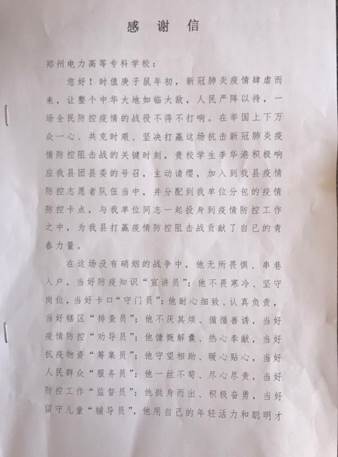 感 谢 信
郑州电力高等专科学校:
您好!时值庚子鼠年初,新冠肺炎疫情肆虐而
来,让整个中华大地如临大敌,人民严阵以待,一
场全民防控疫情的战役不得不打响。在举国上下万
众一心、共克时艰、坚决打赢这场抗击新冠肺炎疫
情防控阻击战的关键时刻,贵校学生李华港积极响
应我县团县委的号召,主动请缨,加入到我县疫情
防控志愿者队伍当中,并分配到我单位分包的疫情
防控卡点,与我单位同志一起投身到疫情防控工作
之中,为我县打赢疫情防控阻击战贡献了自己的青
春力量。
在这场没有硝烟的战争中,他无所畏惧、串巷
入户,当好防疫知识“宣讲员”;他不畏寒冷、坚守
岗位,当好卡口“守门员”;他耐心细致、认真负责,
当好辖区“排查员”;他不厌其烦、循循善诱,当好
疫情防控“劝导员”;他慷慨解囊、热心奉献,当好
抗疫物资“筹集员”;他守望相助、暖心贴心,当好
人民群众“服务员”;他一丝不苟、尽心尽责,当好
防控工作“监督员”;他挺身而出、积极奋勇,当好
留守儿童“辅导员”。他用自己的年轻活力和聪明才